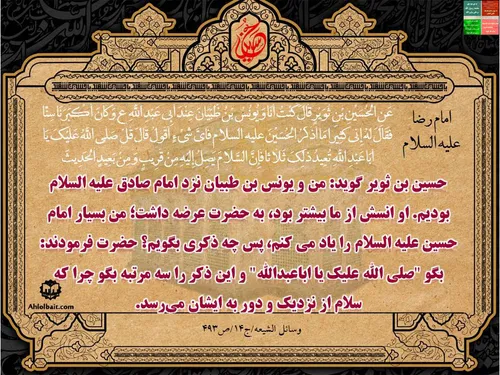 امام رضا
علیه السلام
عَنِ الْحُسَيْنِ بْنِ ثُوَيْرٍ قَالَ كُنْتُ أَنَا وَ يُونُسُ بْنُ ظَبْيَانَ عِنْدَ أَبِي عَبْدِ اللَّهِ ع وَ كَانَ أَكْبَرَنَا سِنّاً
فَقَالَ لَهُ إِنِّي كَثِيراً مَا أَذْكُرُ الْحُسَيْنَ عليه السلام فَأَيَّ شَيْءٍ أَقُولُ قَالَ قُلْ صَلَّى اللَّهُ عَلَيْكَ يَا
أَبَا عَبْدِ اللَّهِ تُعِيدُ ذَلِكَ ثَلَاثاً فَإِنَّ السَّلَامَ يَصِلُ إِلَيْهِ مِنْ قَرِيبٍ وَ مِنْ بَعِيدٍ الْحَدِيثَ
حسین بن ثویر گوید: من و یونس بن طبیان نزد امام صادق علیه السلام
بودیم. او انسش از ما بیشتر بود، به حضرت عرضه داشت؛ من بسیار امام
حسین علیه السلام را یاد می کنم، پس چه ذکری بگویم؟ حضرت فرمودند:
بگو "صلی الله علیک یا اباعبدالله" و این ذکر را سه مرتبه بگو چرا که
سلام از نزدیک و دور به ایشان می‌رسد.
وسائل الشیعه/ج۱۴/ص۴۹۳
Ahlolbait.com